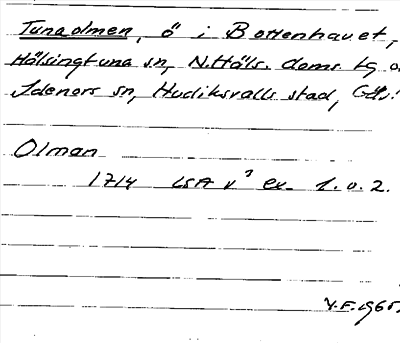 Tunaolmen, ö i Bottenhavet,
Hälsingtuna sn, N.Häls. doms. tg o.
Idenors sn, Hudiksvalls stad, Gävl.
Olman
1714 LSA v³ ex. 1.o.2.
V.F. 1965.